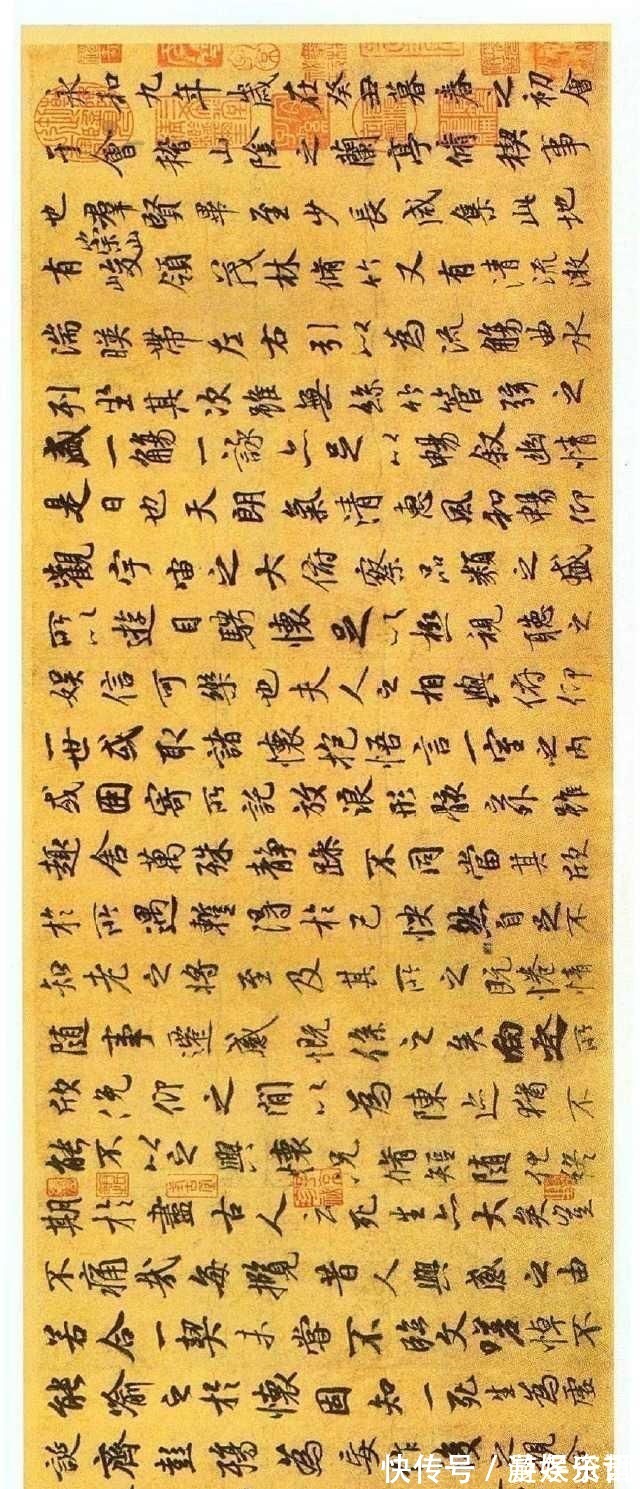 永和九年歲在癸丑暮春之初會
于會稽山陰之蘭亭脩禊事
也羣賢畢至少長咸集此地
有崇山峻領茂林脩竹又有清流激
湍暎帶左右引以為流觴曲水
列坐其次雖無絲竹管弦之
盛一觴一詠亦足以暢敘幽情
是日也天朗氣清惠風和暢仰
觀宇宙之大俯察品類之盛
所以遊目騁懷足以極視聽之
娛信可樂也夫人之相與俯仰
一世或取諸懷抱悟言一室之內
或因寄所託放浪形骸之外雖
趣舍萬殊靜躁不同當其欣
於所遇暫得於己怏然自足不
知老之將至及其所之既惓情
隨事遷感慨係之矣向之所
欣俛仰之閒以為陳迹猶不
能不以之興懷況脩短隨化終
期於盡古人云死生亦大矣豈
不痛哉每攬昔人興感之由
若合一契未嘗不臨文嗟悼不
能喻之於懷固知一死生為虛
誕齊彭殤為妄作後之視
快传号／